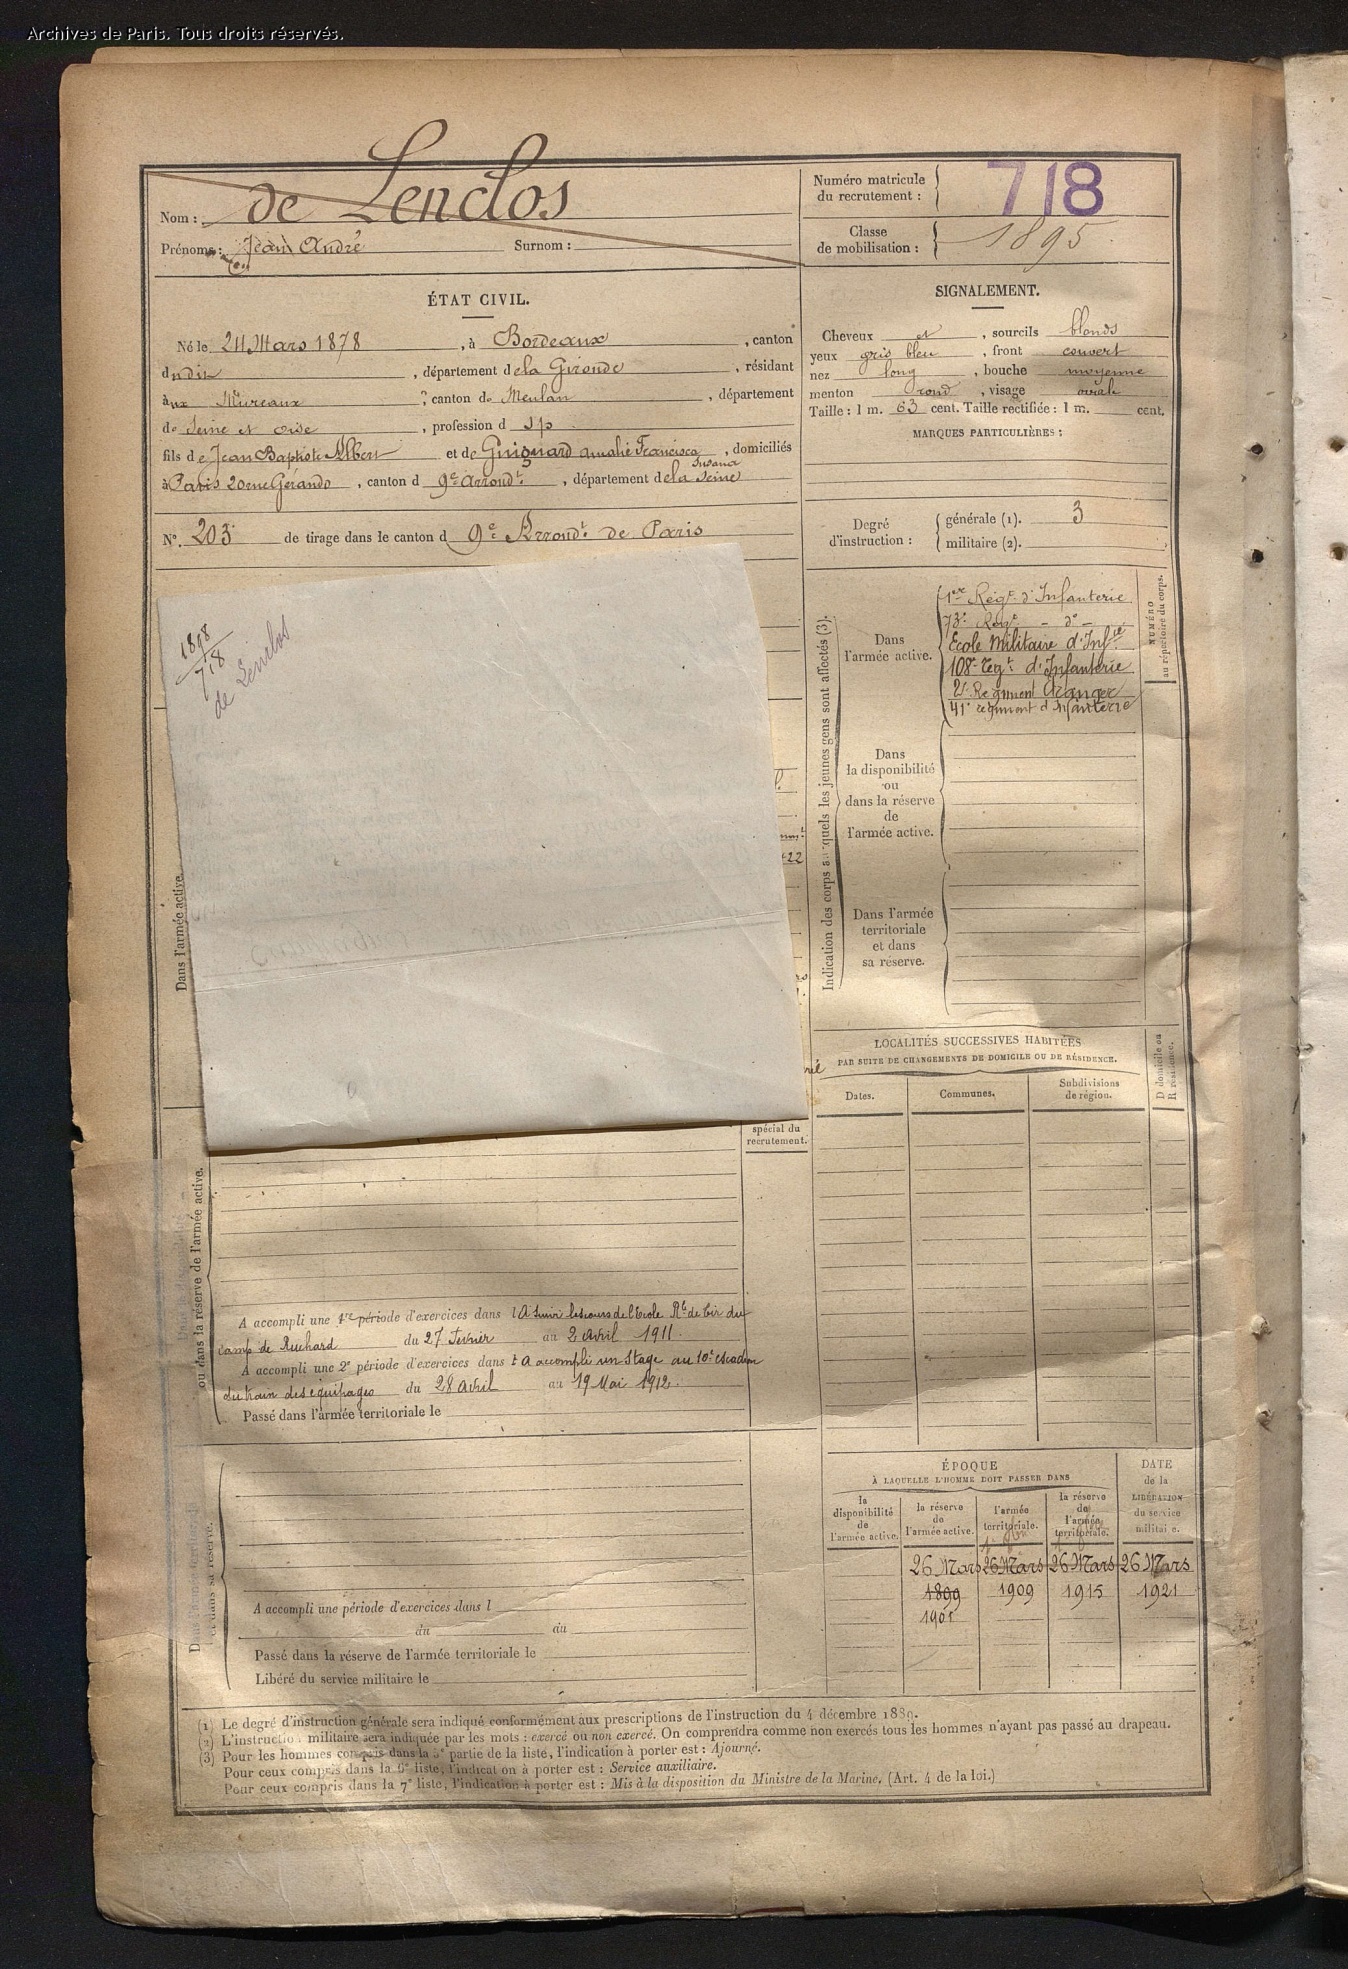 Archives de Paris. Tous droits réservés.
Nom : de Lenclos
Prénoms : Jean André Surnom :
Numéro matricule du recrutement : 718
Classe de mobilisation : 1895
ÉTAT CIVIL.
Né le 24 Mars 1878, à Bordeaux, canton
dudit, département de la Gironde, résidant
aux Mureaux, canton de Meulan, département
de Seine et Oise, profession d sp
fils de Jean Baptiste Albert et de Guignard Amalie Francisca Susana, domiciliés
à Paris 20 rue Gérando, canton d 9e Arrondt, département de la Seine
N°. 203 de tirage dans le canton d 9e Arrondt de Paris
SIGNALEMENT.
Cheveux et, sourcils blonds
yeux gris bleu, front couvert
nez long, bouche moyenne
menton rond, visage ovale
Taille : 1 m. 63 cent. Taille rectifiée : 1 m. cent.
MARQUES PARTICULIÈRES :
Degré d'instruction : générale (1). 3
militaire (2).
1898
718
de Lenclos
Dans l'armée active.
Indication des corps auxquels les jeunes gens sont affectés (3).
Dans l'armée active.
1er Régt d'Infanterie
73e Régt - do -
Ecole Militaire d'Infie
108e régt d'Infanterie
2e Régiment Etranger
41e régiment d'Infanterie
NUMÉRO au répertoire du corps.
Dans
la disponibilité
ou
dans la réserve
de
l'armée active.
Dans l'armée
territoriale
et dans
sa réserve.
LOCALITÉS SUCCESSIVES HABITÉES
PAR SUITE DE CHANGEMENTS DE DOMICILE OU DE RÉSIDENCE.
Dates. Communes. Subdivisions de région. D domicile ou R résidence.
spécial du
recrutement.
ou dans la réserve de l'armée active.
A accompli une 1re période d'exercices dans l A suivi les cours de l'Ecole Rle de tir du
camp de Ruchard du 27 Février au 2 avril 1911.
A accompli une 2e période d'exercices dans l A accompli un stage au 10e escadron
du train des équipages du 28 avril au 19 Mai 1912.
Passé dans l'armée territoriale le
et dans sa réserve.
A accompli une période d'exercices dans l
du au
Passé dans la réserve de l'armée territoriale le
Libéré du service militaire le
ÉPOQUE
À LAQUELLE L'HOMME DOIT PASSER DANS
DATE de la LIBÉRATION du service militaire.
la disponibilité de l'armée active. la réserve de l'armée active. l'armée territoriale. la réserve de l'armée territoriale.
26 Mars 26 Mars 26 Mars 26 Mars
1899 1909 1915 1921
1901
(1) Le degré d'instruction générale sera indiqué conformément aux prescriptions de l'instruction du 4 décembre 1889.
(2) L'instruction militaire sera indiquée par les mots : exercé ou non exercé. On comprendra comme non exercés tous les hommes n'ayant pas passé au drapeau.
(3) Pour les hommes compris dans la 5e partie de la liste, l'indication à porter est : Ajourné.
Pour ceux compris dans la 6e liste, l'indication à porter est : Service auxiliaire.
Pour ceux compris dans la 7e liste, l'indication à porter est : Mis à la disposition du Ministre de la Marine. (Art. 4 de la loi.)